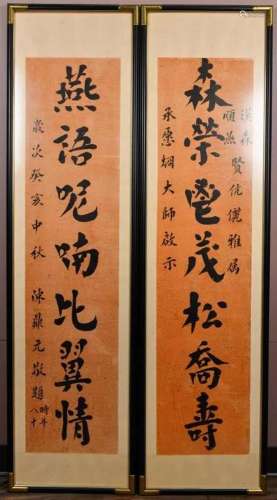 漢森
順燕
賢伉儷雅屬
森榮鬯茂松喬壽
大師啟示
燕語呢喃比翼情
歲次癸亥中秋 陳鼎元敬題
時年
八十